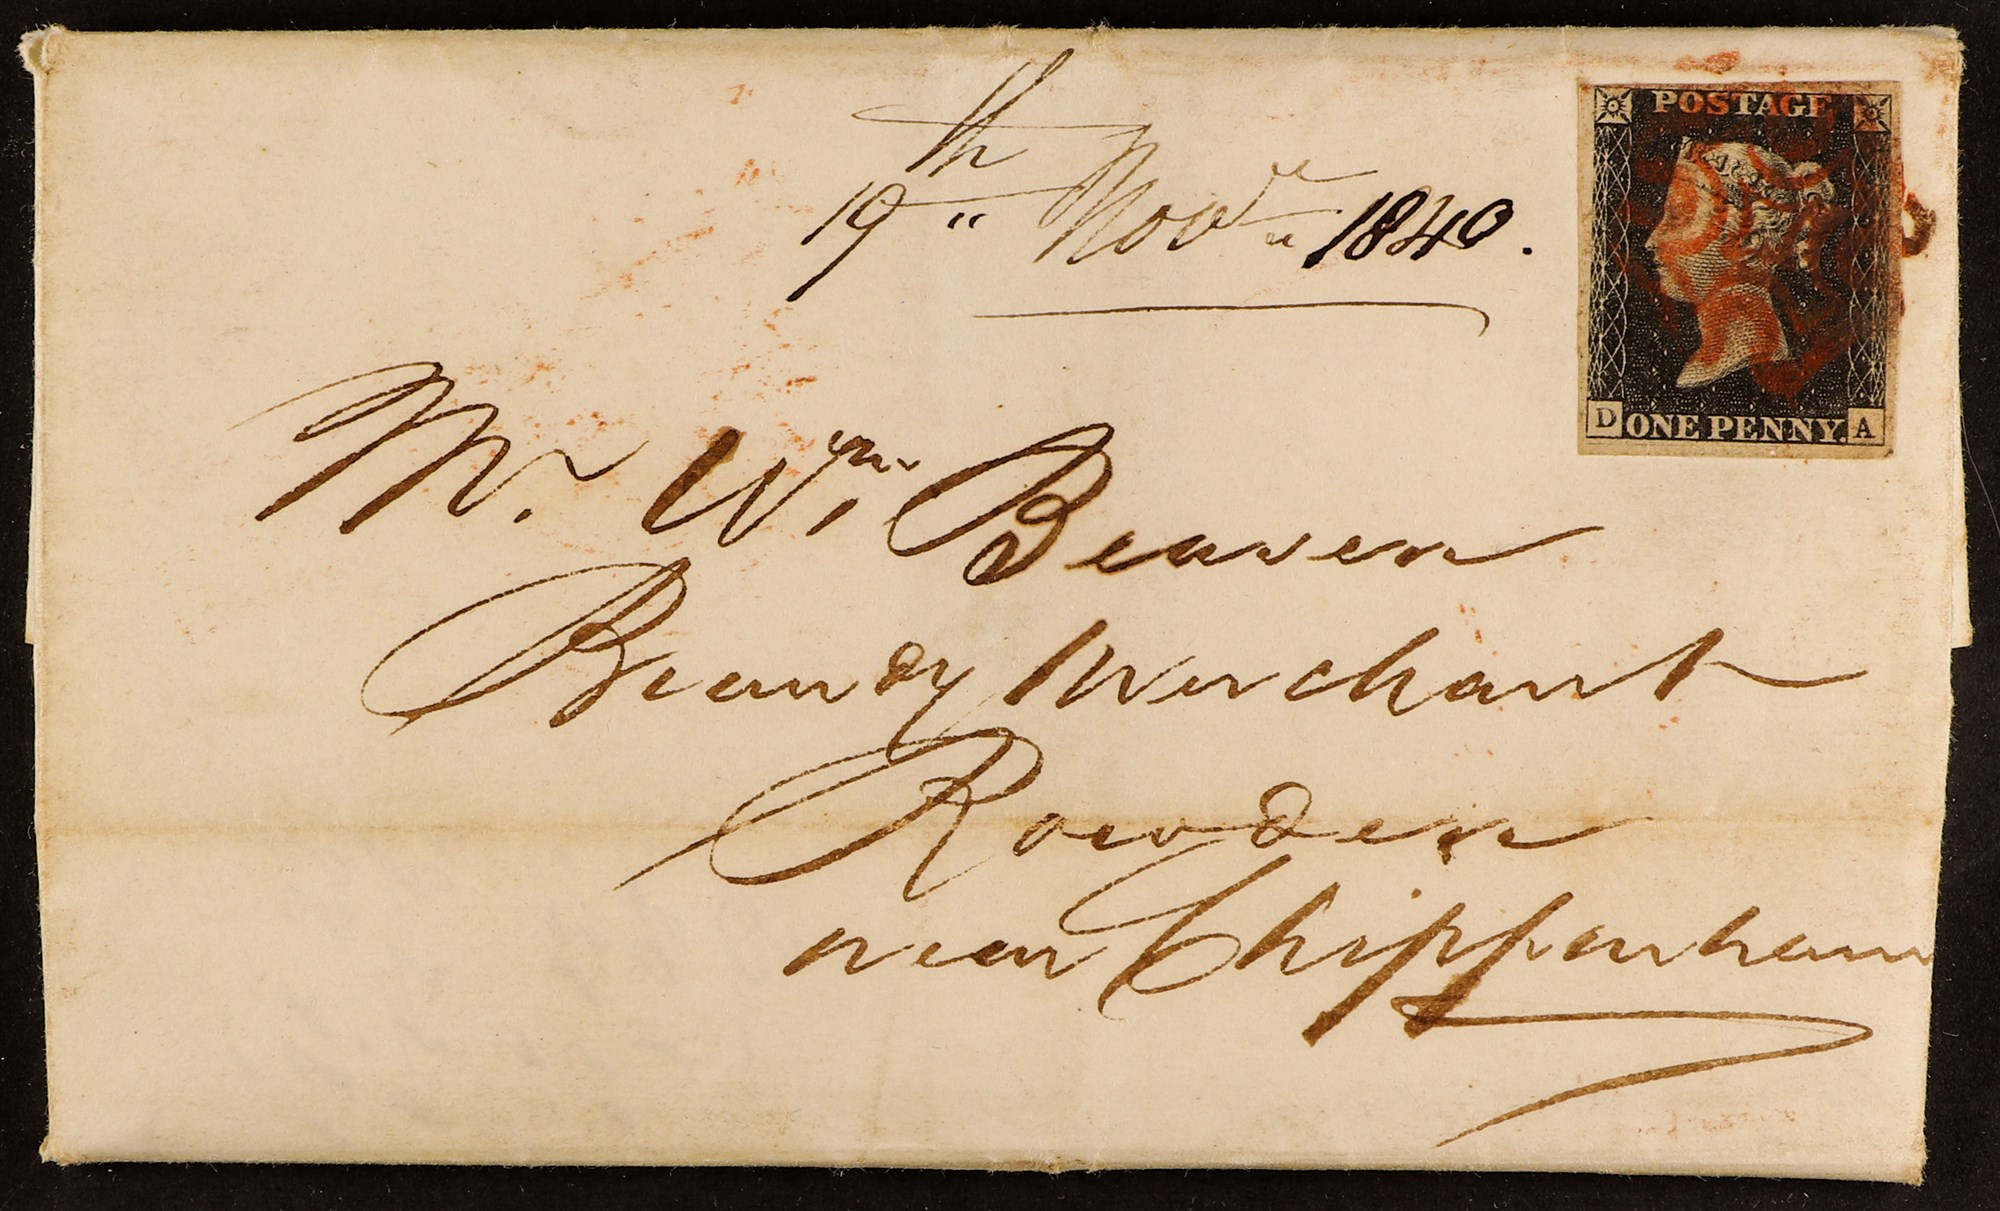 19th Novr 1840.
POSTAGE
D ONE PENNY. A
Mr. Wm Beaven
Brandy Merchant
Rowden
near Chippenham